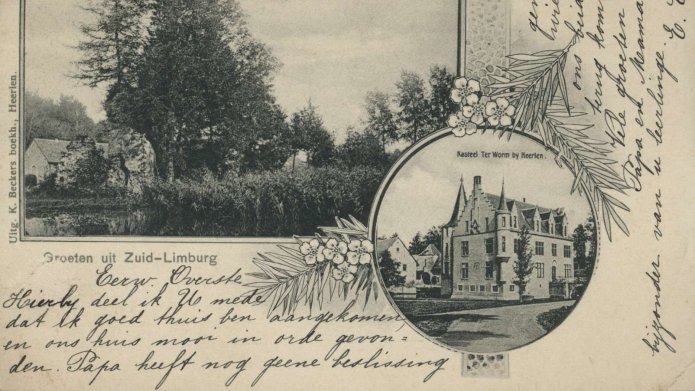 Uitg. K. Beckers boekh., Heerlen.
Groeten uit Zuid-Limburg
Kasteel Ter Worm by Heerlen.
Eerw. Overste
Hierby deel ik U mede
dat ik goed thuis ben aangekomen,
en ons huis mooi in orde gevon-
den. Papa heeft nog geene beslissing
gen
ons
terug kom
Vele groeten
Papa en Mama
byzonder van u leerlinge. E. C